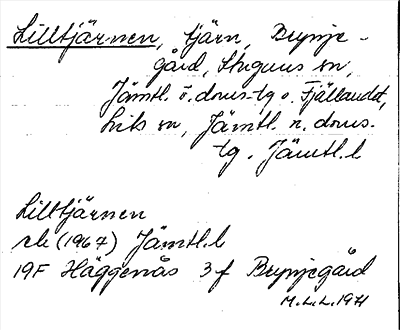 Lilltjärnen, tjärn, Brynje-
gård, Stuguns sn,
Jämtl. ö. doms-tg o. Fjällandet,
Lits sn, Jämtl. n. doms-
tg. Jämtl. l
Lilltjärnen
rek (1967) Jämtl. l
19F Häggenås 3f Brynjegård
M.L.L. 1971